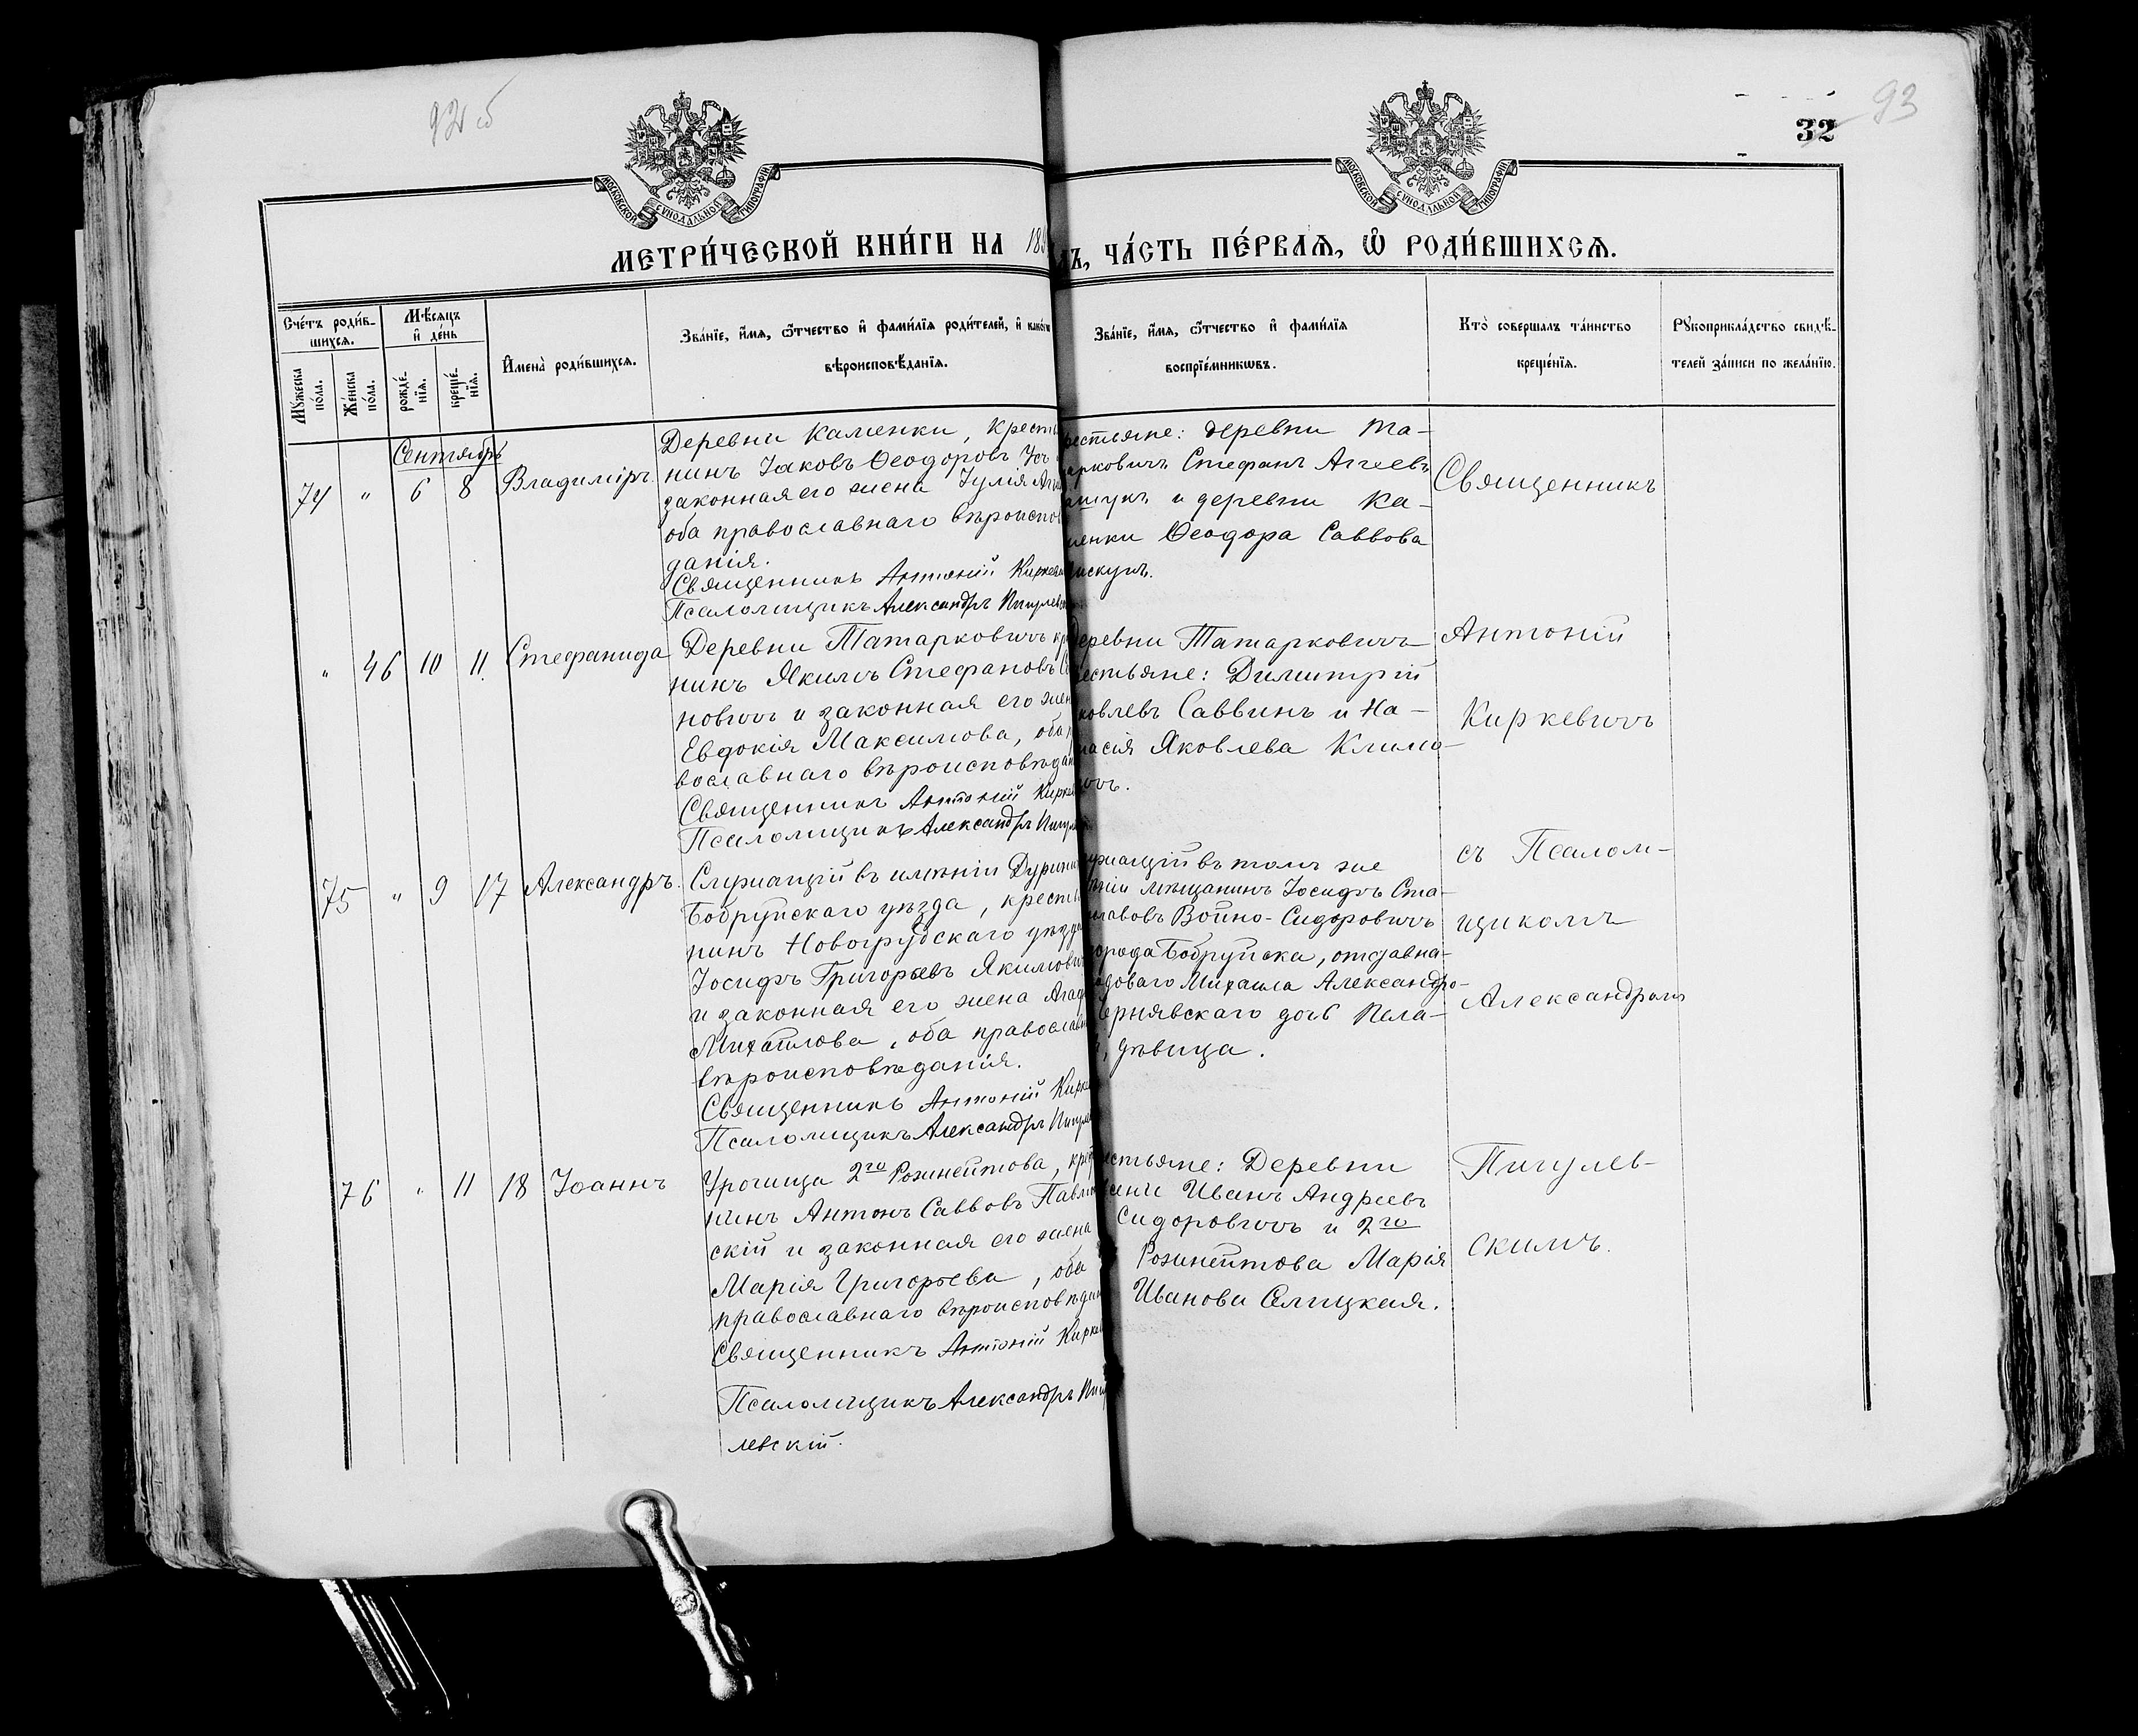 92 об
93
32
МОСКОВСКОЙ СУНОДАЛЬНОЙ ТИПОГРАФІИ
МОСКОВСКОЙ СУНОДАЛЬНОЙ ТИПОГРАФІИ
МЕТРИ́ЧЕСКОЙ КНИ́ГИ НА 18
ЧА́СТЬ ПЕ́РВАѦ, Ѽ РОДИ́ВШИХСѦ.
Сче́тъ роди́в-
шихсѧ.
Мꙋ́жеска по́ла.
Же́нска по́ла.
Мѣ́сѧцъ
и҆ де́нь
рожде́-
нїѧ.
креще́-
нїѧ.
И҆мена̀ роди́вшихсѧ.
Зва́нїе, и҆́мѧ, ѻ҆́тчество и҆ фами́лїѧ роди́телей, и҆
вѣроисповѣ́данїѧ.
Зва́нїе, и҆́мѧ, ѻ҆́тчество и҆ фами́лїѧ
воспрїе́мникѡвъ.
Кто̀ соверша́лъ та́инство
креще́нїѧ.
Рꙋкоприкла́дство свидѣ́-
телей за́писи по жела́нїю.
Сентябрь
74 " 6 8 Владиміръ.
Деревни Каменки, крестья
нинъ Іаковъ Ѳеодоровъ
законная его жена Іулія
оба православнаго вѣроиспов
данія.
Священникъ Антоній Киркев
Псаломщикъ Александръ Пигулев
рестьяне: деревни Та-
арковичъ Стефанъ Аггеевъ
и деревни Ка-
менки Ѳеодора Саввова
" 46 10 11 Стефанида
Деревни Татарковичъ кре
нинъ Якимъ Стефановъ
новичъ и законная его жен
Евдокія Максимова, оба
вославнаго вѣроисповѣдан
Священникъ Антоній Кирке
Псаломщикъ Александръ Пигул
Деревни Татарковичъ
естьяне: Димитрій
ковлевъ Саввинъ и На-
тасія Яковлева Климо-
ичъ.
75 " 9 17 Александръ.
Служащій въ имѣніи
Бобруйскаго уѣзда, кресть
нинъ Новогрудскаго уѣзда
Іосифъ Григорьевъ Якимович
и законная его жена Агаф
Михайлова, оба православн
вѣроисповѣданія.
Священникъ Антоній Кирке
Псаломщикъ Александръ Пигул
ужащій въ томъ же
ѣніи мѣщанинъ Іосифъ Ста-
иславовъ Войно-Сидоровичъ
города Бобруйска, отставна-
рядоваго Михаила Александро-
Чернявскаго дочь Пела-
, дѣвица.
76 " 11 18 Іоаннъ
Урочища 2го Рожнейтова, кре
нинъ Антонъ Саввовъ Павлов
скій и законная его жена
Марія Григорьева, оба
православнаго вѣроисповѣдан
Священникъ Антоній Кирке
Псаломщикъ Александръ Пигу
левскій.
естьяне: Деревни
Иванъ Андреевъ
Сидоровичъ и 2го
Рожнейтова Марія
Иванова Слицкая.
Священникъ
Антоній
Киркевичъ
съ Псалом-
щикомъ
Александромъ
Пигулев-
скимъ.